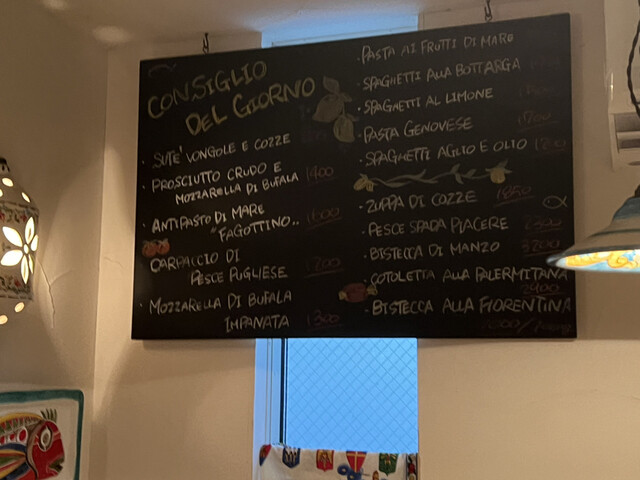 CONSIGLIO
DEL GIORNO
· SUTE' VONGOLE E COZZE
· PROSCIUTTO CRUDO E
MOZZARELLA DI BUFALA 1400
· ANTIPASTO DI MARE
"FAGOTTINO.. 1600
CARPACCIO DI
PESCE PUGLIESE
· MOZZARELLA DI BUFALA
IMPANATA 1300
· PASTA AI FRUTTI DI MARE
· SPAGHETTI ALLA BOTTARGA
· SPAGHETTI AL LIMONE
PASTA GENOVESE
· SPAGHETTI AGLIO E OLIO
· ZUPPA DI COZZE 1850
· PESCE SPADA PIACERE
· BISTECCA DI MANZO 3200
· COTOLETTA ALLA PALERMITANA
2400
· BISTECCA ALLA FIORENTINA